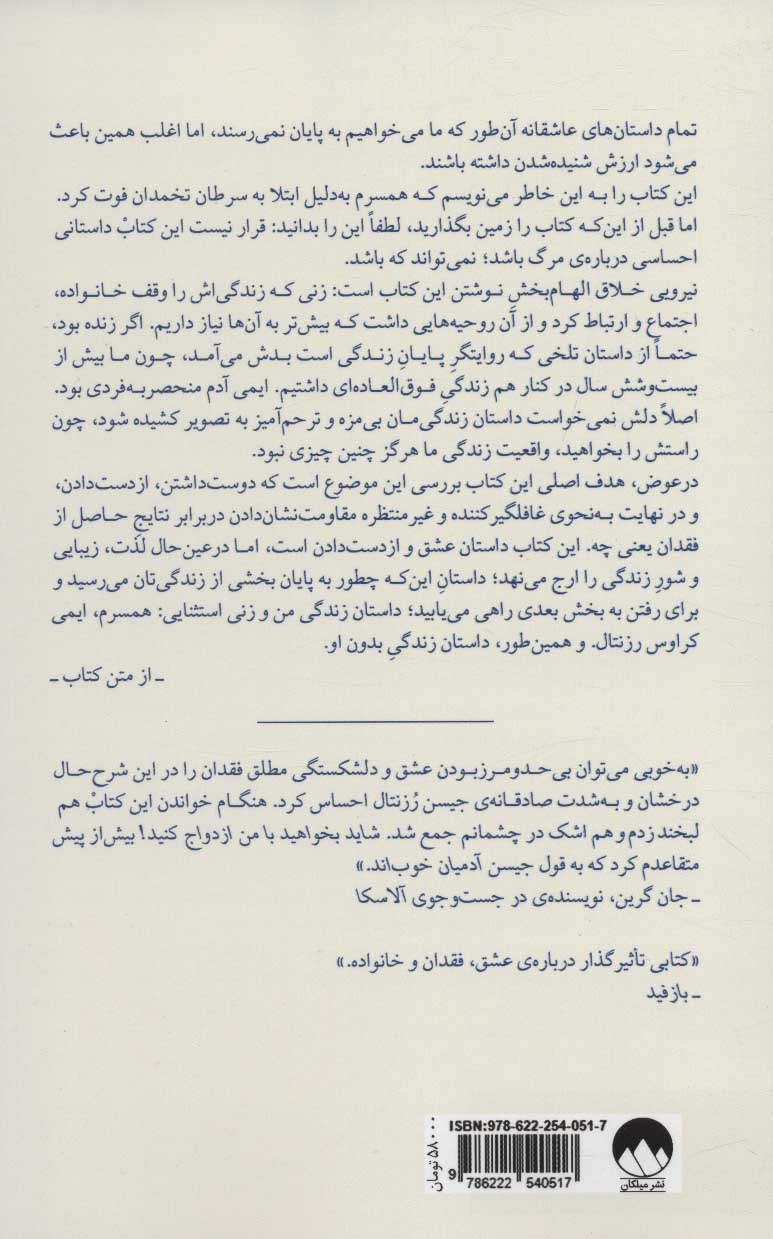 تمام داستان‌های عاشقانه آن‌طور که ما می‌خواهیم به پایان نمی‌رسند، اما اغلب همین باعث
می‌شود ارزش شنیده‌شدن داشته باشند.
این کتاب را به این خاطر می‌نویسم که همسرم به‌دلیل ابتلا به سرطان تخمدان فوت کرد.
اما قبل از این‌که کتاب را زمین بگذارید، لطفاً این را بدانید: قرار نیست این کتابْ داستانی
احساسی درباره‌ی مرگ باشد؛ نمی‌تواند که باشد.
نیرویی خلاق الهام‌بخشِ نوشتن این کتاب است: زنی که زندگی‌اش را وقف خانواده،
اجتماع و ارتباط کرد و از آن روحیه‌هایی داشت که بیش‌تر به آن‌ها نیاز داریم. اگر زنده بود،
حتماً از داستان تلخی که روایتگرِ پایانِ زندگی است بدش می‌آمد، چون ما بیش از
بیست‌وشش سال در کنار هم زندگیِ فوق‌العاده‌ای داشتیم. ایمی آدم منحصربه‌فردی بود.
اصلاً دلش نمی‌خواست داستان زندگی‌مان بی‌مزه و ترحم‌آمیز به تصویر کشیده شود، چون
راستش را بخواهید، واقعیت زندگی ما هرگز چنین چیزی نبود.
درعوض، هدف اصلی این کتاب بررسی این موضوع است که دوست‌داشتن، ازدست‌دادن،
و در نهایت به‌نحوی غافلگیرکننده و غیرمنتظره مقاومت‌نشان‌دادن دربرابر نتایجِ حاصل از
فقدان یعنی چه. این کتاب داستان عشق و ازدست‌دادن است، اما درعین‌حال لذت، زیبایی
و شورِ زندگی را ارج می‌نهد؛ داستانِ این‌که چطور به پایان بخشی از زندگی‌تان می‌رسید و
برای رفتن به بخش بعدی راهی می‌یابید؛ داستان زندگی من و زنی استثنایی: همسرم، ایمی
کراوس رزنتال. و همین‌طور، داستان زندگیِ بدون او.
ـ از متن کتاب ـ
«به‌خوبی می‌توان بی‌حدومرزبودن عشق و دلشکستگی مطلق فقدان را در این شرح‌حال
درخشان و به‌شدت صادقانه‌ی جیسن رُزنتال احساس کرد. هنگام خواندن این کتابْ هم
لبخند زدم و هم اشک در چشمانم جمع شد. شاید بخواهید با من ازدواج کنید! بیش‌از پیش
متقاعدم کرد که به قول جیسن آدمیان خوب‌اند.»
ـ جان گرین، نویسنده‌ی در جست‌وجوی آلاسکا
«کتابی تأثیرگذار درباره‌ی عشق، فقدان و خانواده.»
ـ بازفید
ISBN:978-622-254-051-7
9 786222 540517
۵۸۰۰۰ تومان
نشر میلکان